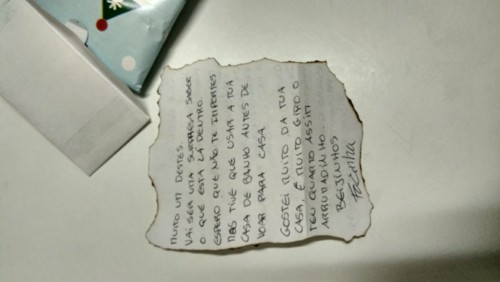 NUM DESTES
VAI SER UMA SURPRESA SABER
O QUE ESTÁ LÁ DENTRO.
ESPERO QUE NÃO TE IMPORTES
MAS TIVE QUE USAR A TUA
CASA DE BANHO ANTES DE
VOAR PARA CASA.
GOSTEI MUITO DA TUA
CASA, É MUITO GIRO O
TEU QUARTO ASSIM
ARRUMADINHO.
BEIJINHOS